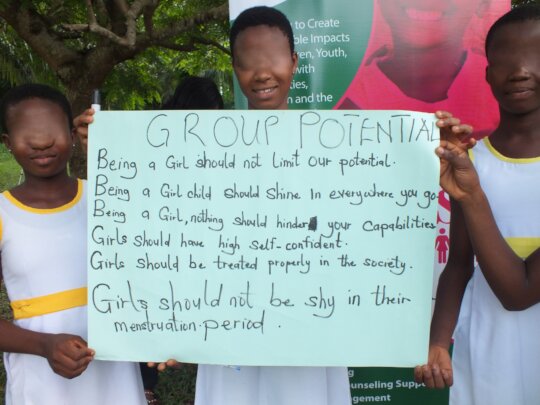 to Create
ble Impacts
ren, Youth,
with
ties,
n and the
GROUP POTENTIAL
Being a Girl should not limit our potential.
Being a Girl child should shine In everywhere you go
Being a Girl, nothing should hinder your capabilities
Girls should have high self-confident.
Girls should be treated properly in the society.
Girls should not be shy in their
menstruation period.
ng
unseling Suppo
gement